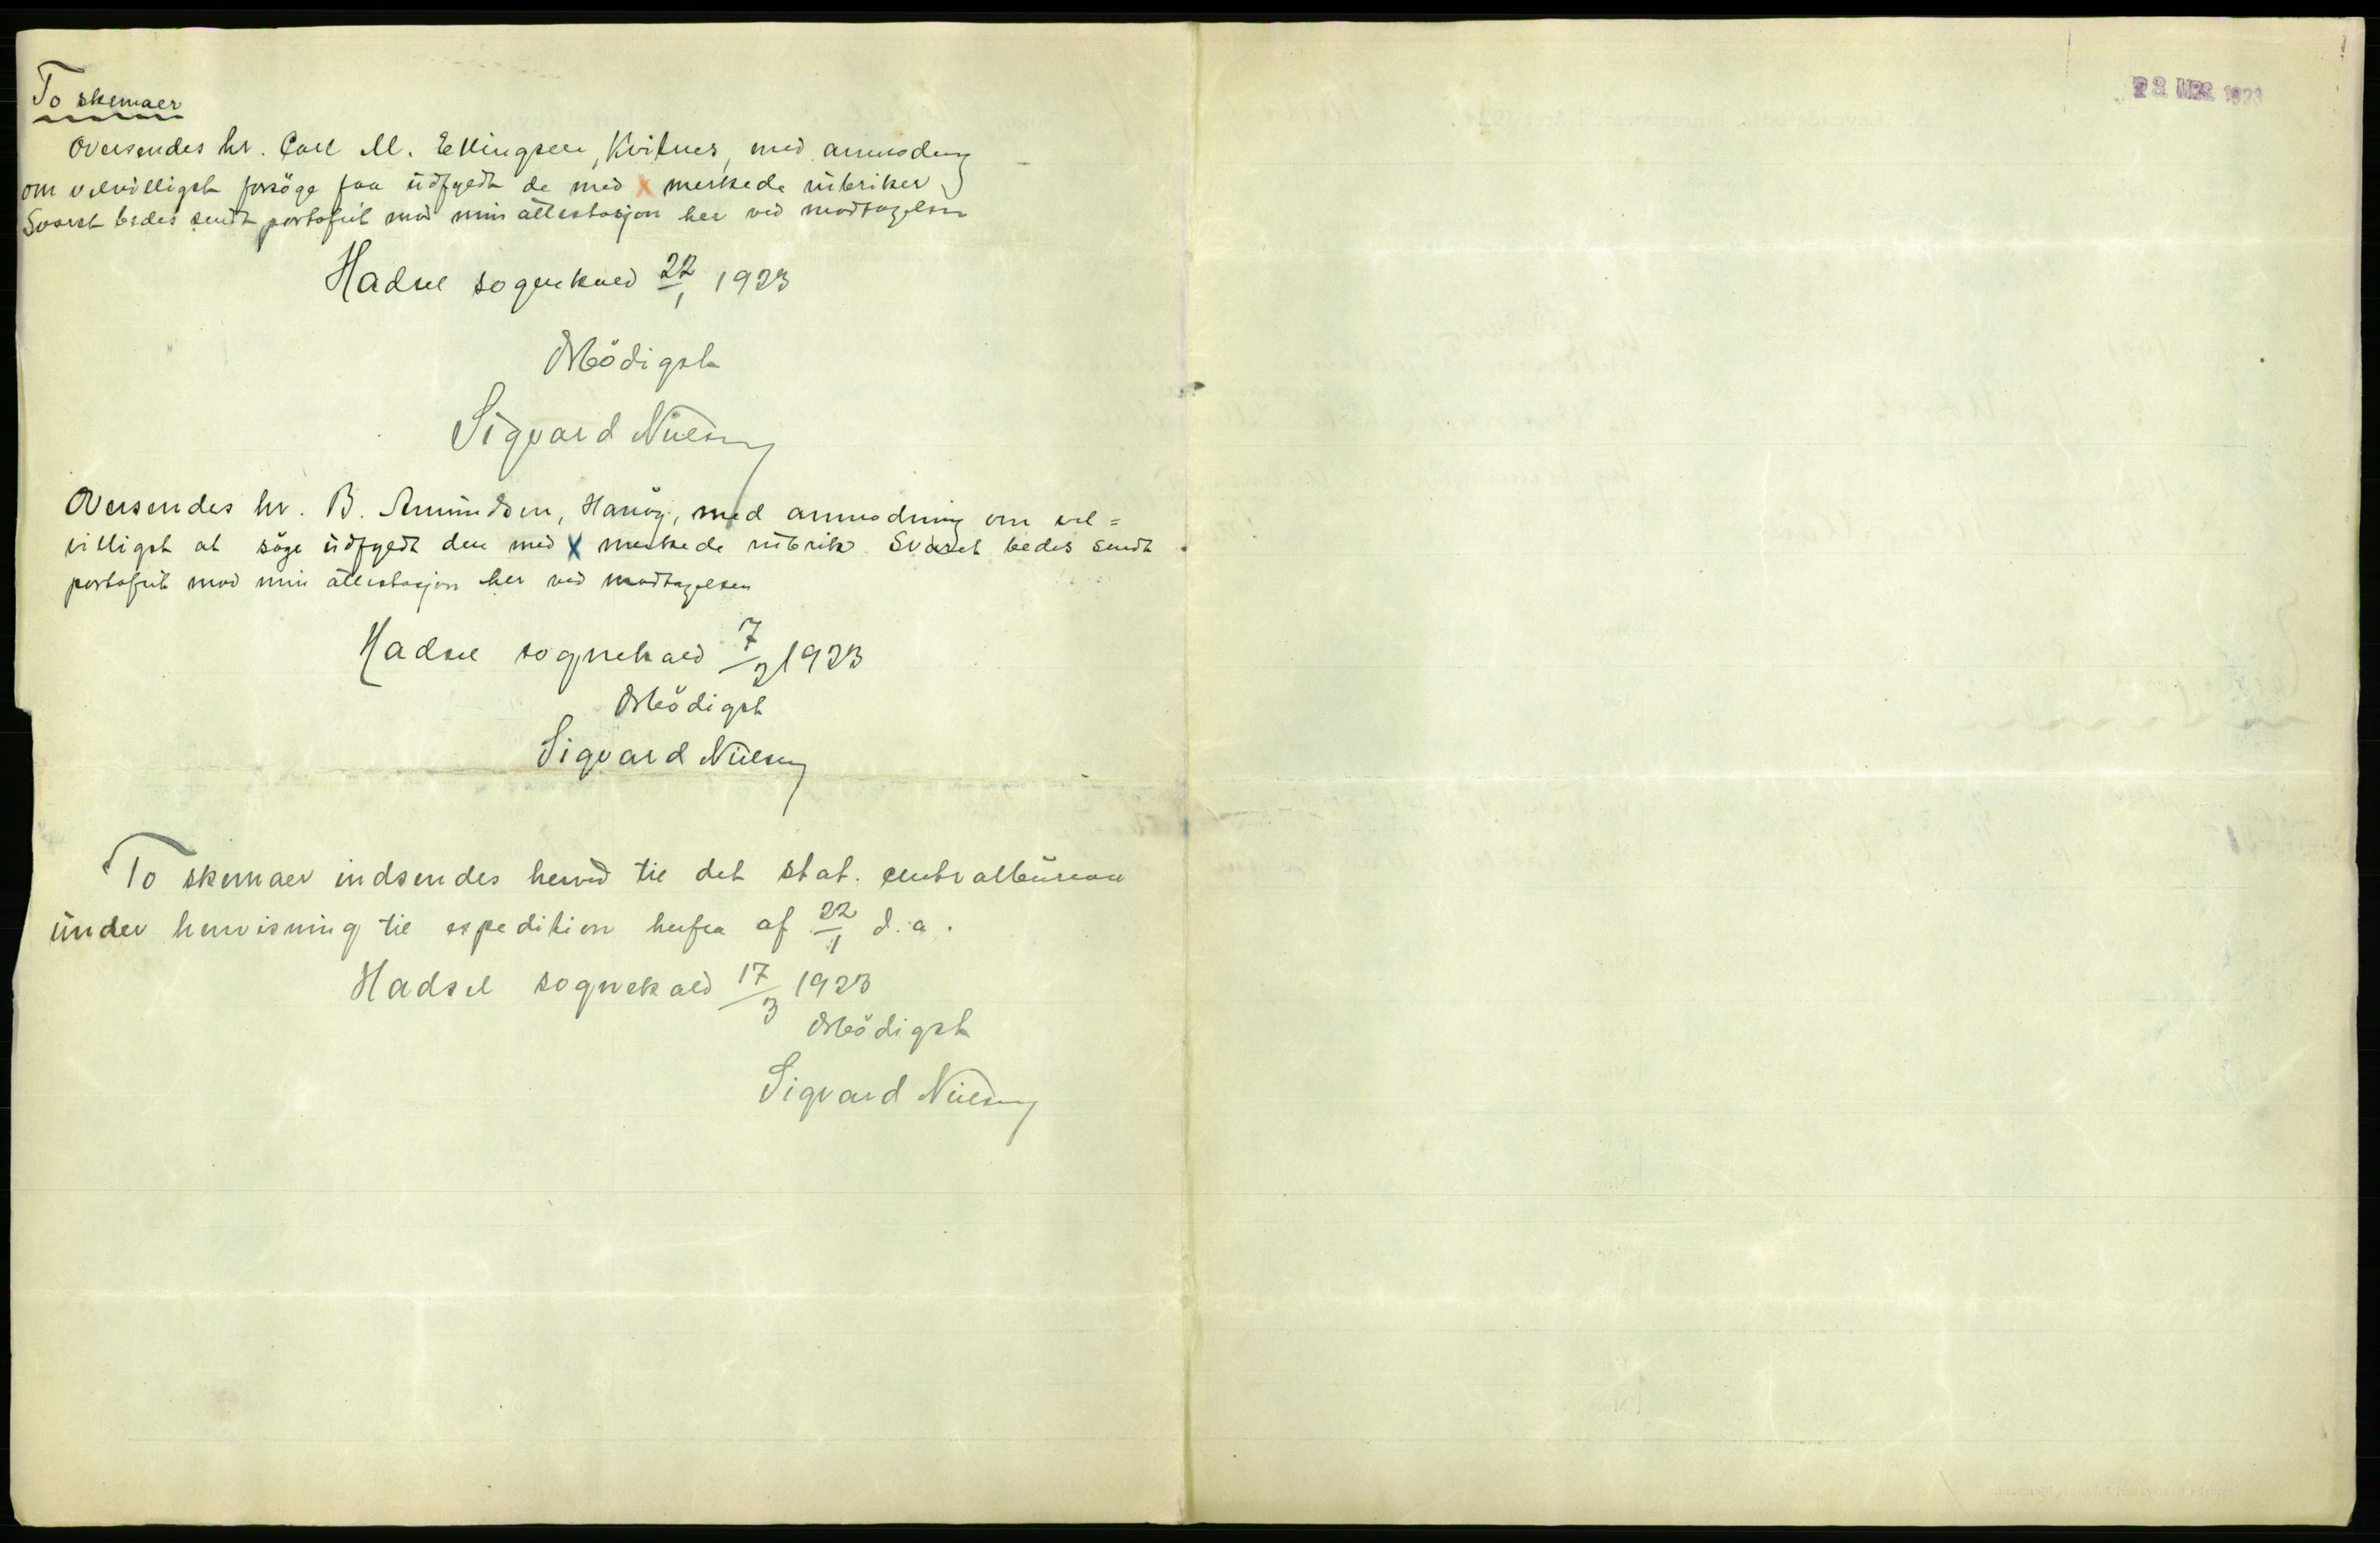 To skemaer
Oversendes hr. Carl M. Ellingsen, Kvitnes, med anmodning
om velvilligst forsöge faa udfyldt de med X merkede rubriker
Svaret bedes sendt portofrit mod min attestasjon her ved modtagelsen
Hadsel sognekald 22/1 1923
Ærbödigst
Sigvard Nielsen
Oversendes hr. B. Amundsen, Hanöy, med anmodning om vel=
villigst at söge udfyldt den med X merkede rubrik. Svaret bedes sendt
portofrit mod min attestasjon her ved modtagelsen
Hadsel sognekald 7/3 1923
Ærbödigst
Sigvard Nielsen
To skemaer indsendes herved til det stat. centralbureau
under henvisning til expedition herfra af 22/1 d. a.
Hadsel sognekald 17/3 1923
Ærbödigst
Sigvard Nielsen
1923